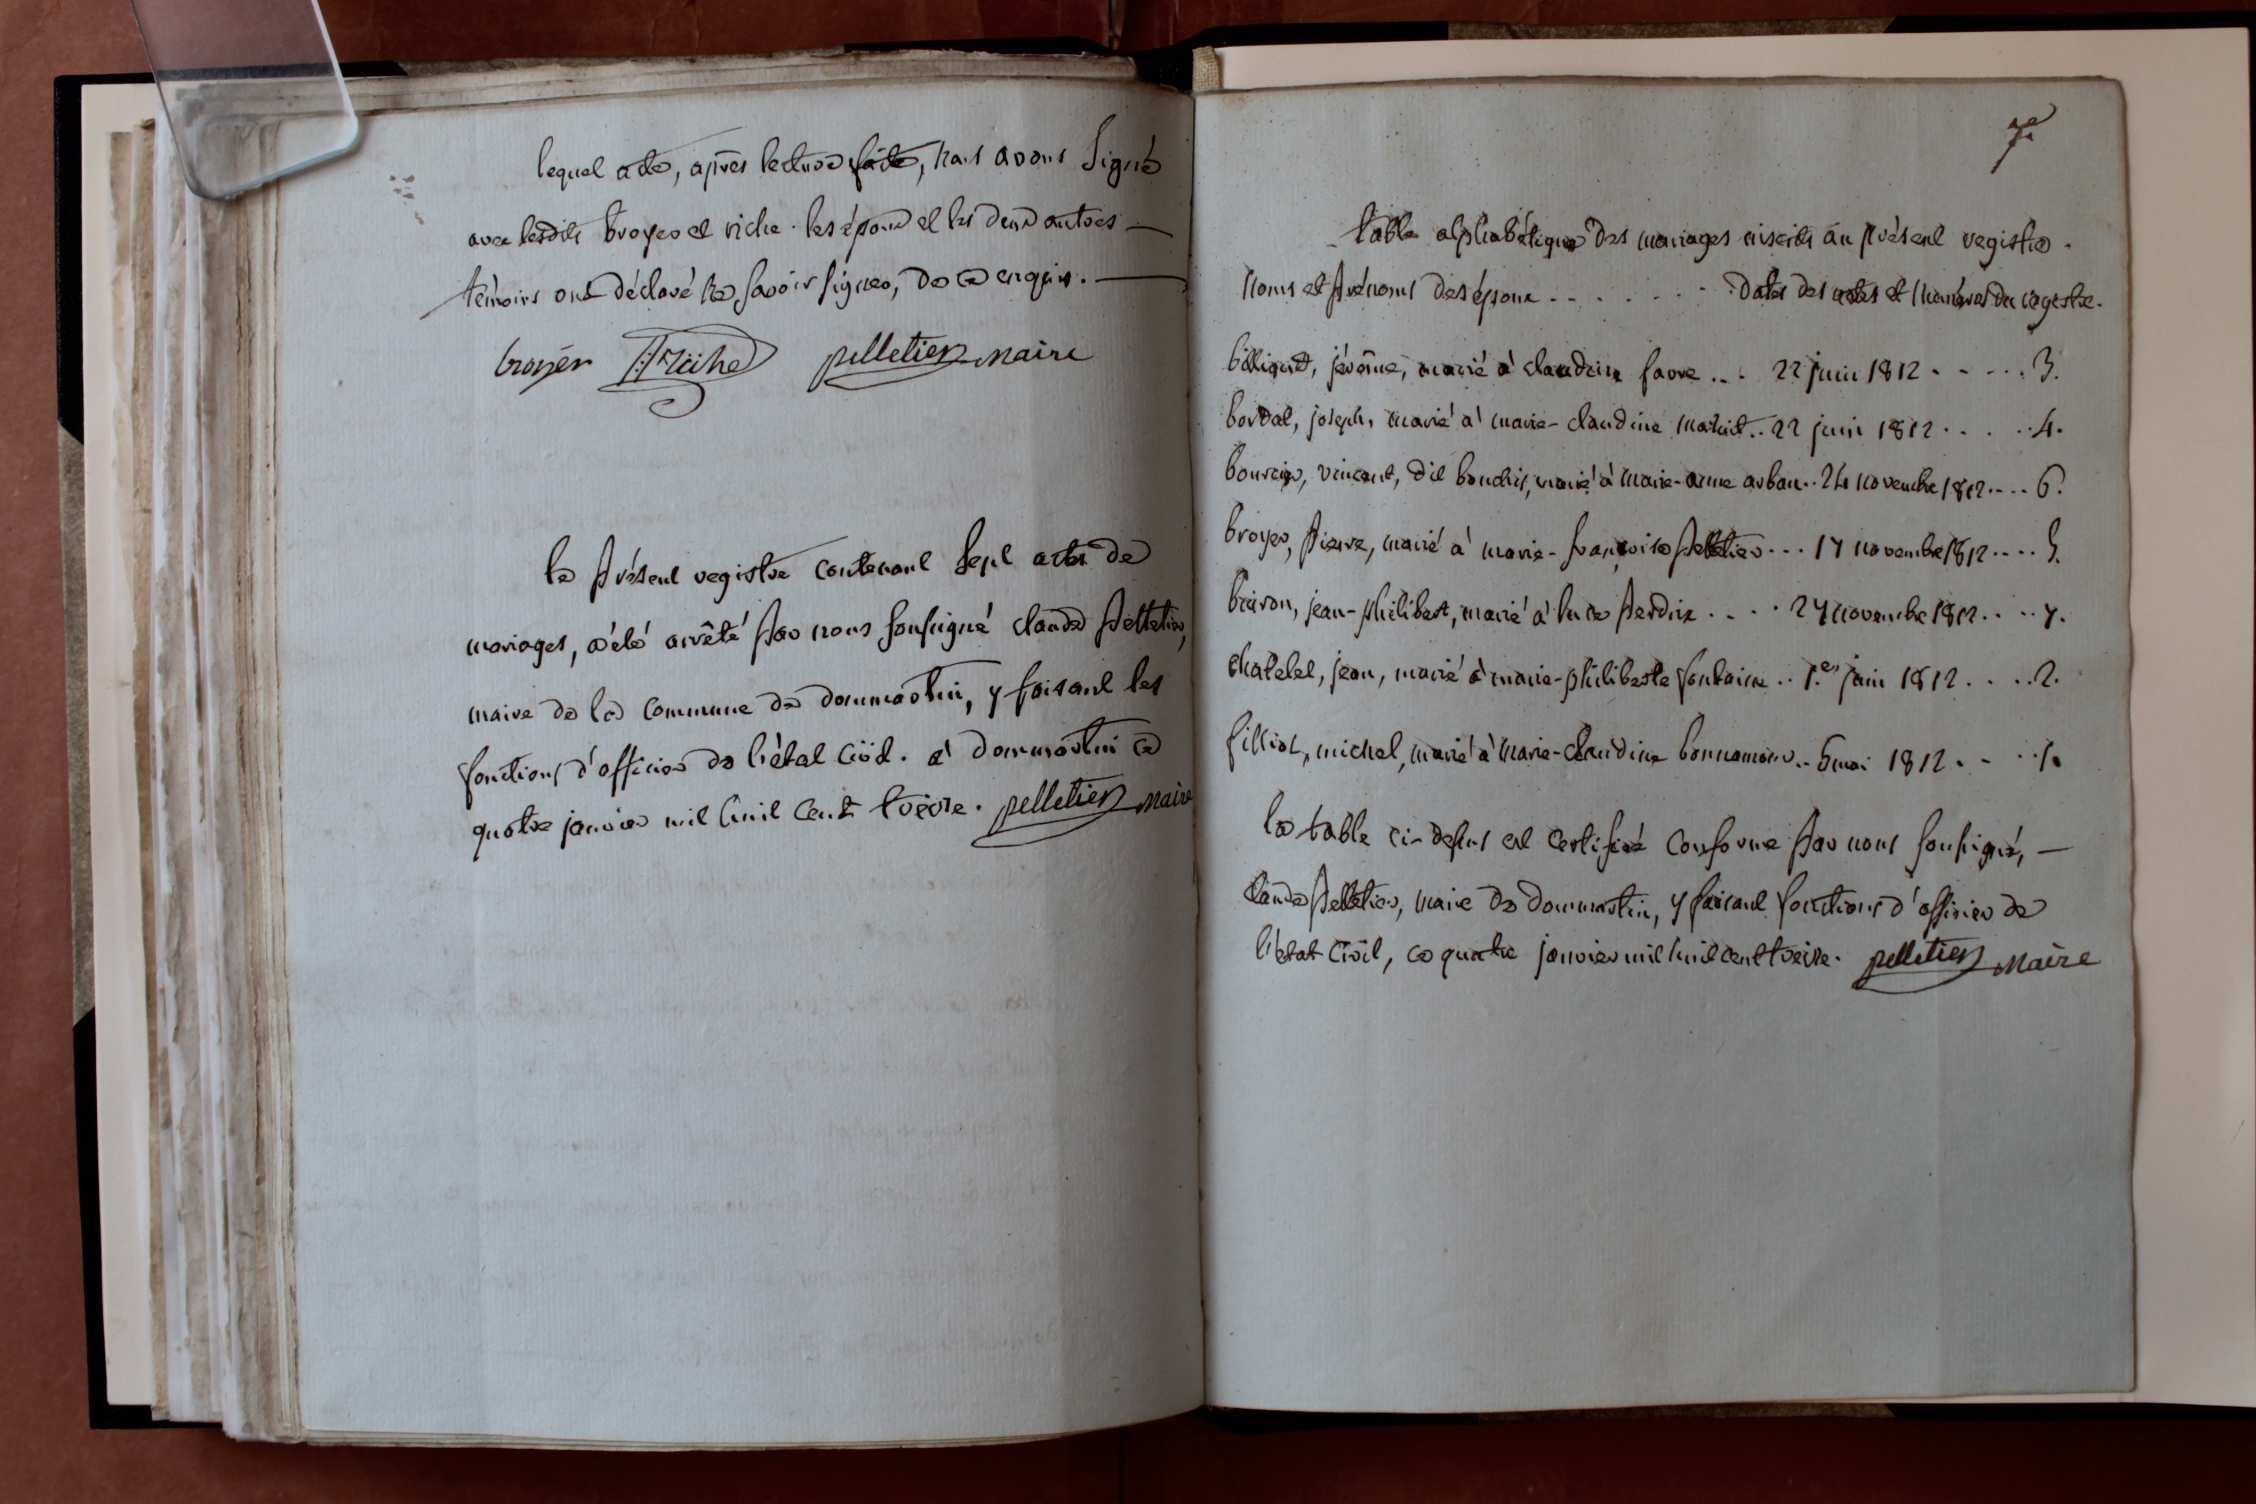 lequel acte, après lecture faite, nous avons signé
avec lesdits broyer et riche. les époux et les deux autres
témoins ont déclaré ne savoir signer, de ce enquis.
broyer Riche pelletier maire
le présent registre contenant sept actes de
mariages, a été arrêté par nous soussigné claude pelletier,
maire de la commune de dommartin, y faisant les
fonctions d'officier de l'état civil. à dommartin ce
quatre janvier mil huit cent treize. pelletier maire
7e
table alphabétique des mariages inscrits au présent registre.
noms et prénoms des époux . . . . . . . dates des actes et numéros du registre.
billioud, jérôme, marié à claudine favre ... 22 juin 1812 . . . . . 3.
bordat, joseph, marié à marie-claudine .. 22 juin 1812 . . . . . 4.
bourcier, vincent, dit marié à marie-anne arban .. 24 novembre 1812 .... 6.
broyer, pierre, marié à marie-françoise pelletier ... 17 novembre 1812 .... 5.
buiron, jean-philibert, marié à luce perdrix .... 24 novembre 1812 .... 7.
chatelet, jean, marié à marie-philiberte fontaine .. 1.er juin 1812 .... 2.
filliot, michel, marié à marie-claudine .. 5 mai 1812 . . . . 1.
la table ci-dessus est certifiée conforme par nous soussigné,
claude pelletier, maire de dommartin, y faisant fonctions d'officier de
l'état civil, ce quatre janvier mil huit cent treize. pelletier maire